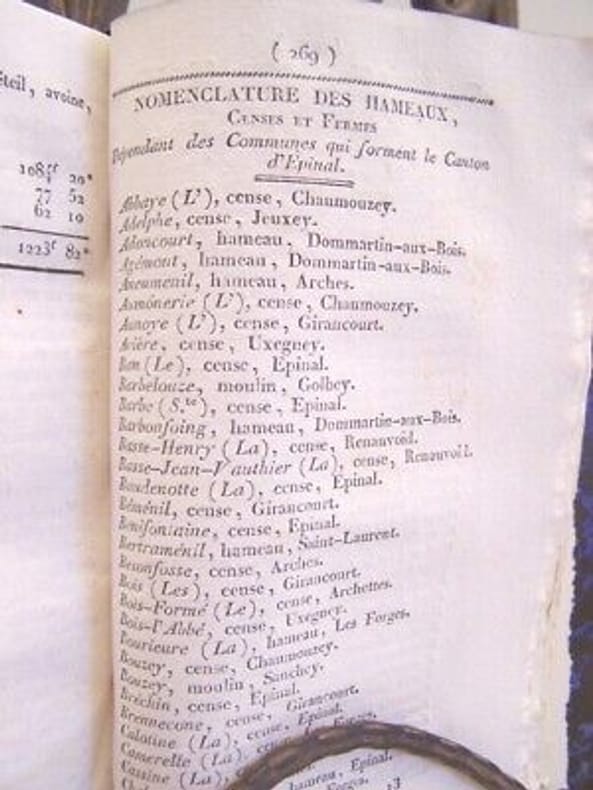 éteil, avoine,
108 ff 20
77 52
62 10
1223 f 82
( 269 )
NOMENCLATURE DES HAMEAUX,
CENSES ET FERMES
Dépendant des Communes qui forment le Canton
d'Epinal.
Abbaye (L'), cense, Chaumouzey.
Adelphe, cense, Jeuxey.
Adoncourt, hameau, Dommartin-aux-Bois.
Agémont, hameau, Dommartin-aux-Bois.
Aneumenil, hameau, Arches.
Aumônerie (L'), cense, Chaumouzey.
Aunoye (L'), cense, Girancourt.
Avière, cense, Uxegney.
Ban (Le), cense, Epinal.
Barbelouze, moulin, Golbey.
Barbe (S.te), cense, Epinal.
Barbonfoing, hameau, Dommartin-aux-Bois.
Basse-Henry (La), cense, Renauvoid.
Basse-Jean-Vauthier (La), cense, Renauvoid.
Baudenotte (La), cense, Epinal.
Béménil, cense, Girancourt.
Bénifontaine, cense, Epinal.
Bertraménil, hameau, Saint-Laurent.
cense, Arches.
Bois (Les), cense, Girancourt.
Bois-Formé (Le), cense, Archettes.
Bois-l'Abbé, cense, Uxegney.
(La), hameau, Les Forges.
Bouzey, cense, Chaumouzey.
Bouzey, moulin, Sanchey.
Bréchin, cense, Epinal.
Brennecone, cense, Girancourt.
Calotine (La), cense, Epinal.
Camerelle (La), Forges.
Cassine (La),
hameau, Epinal.
Forges.
13